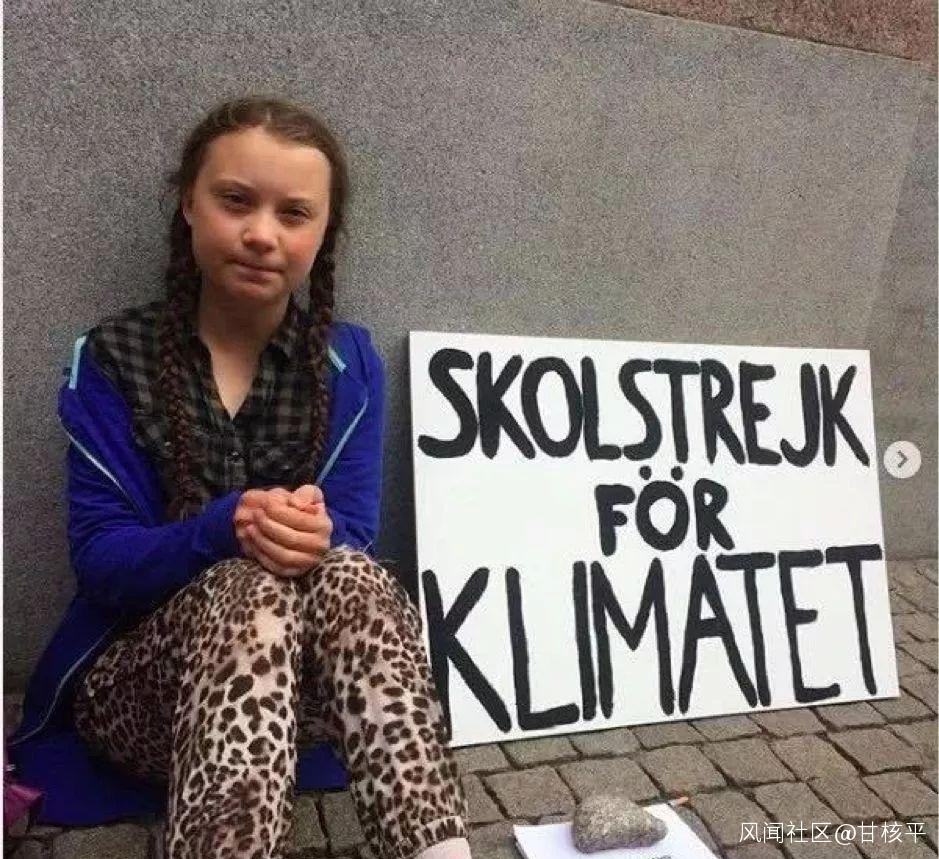 SKOLSTREJK
FÖR
KLIMATET
风闻社区@甘核平